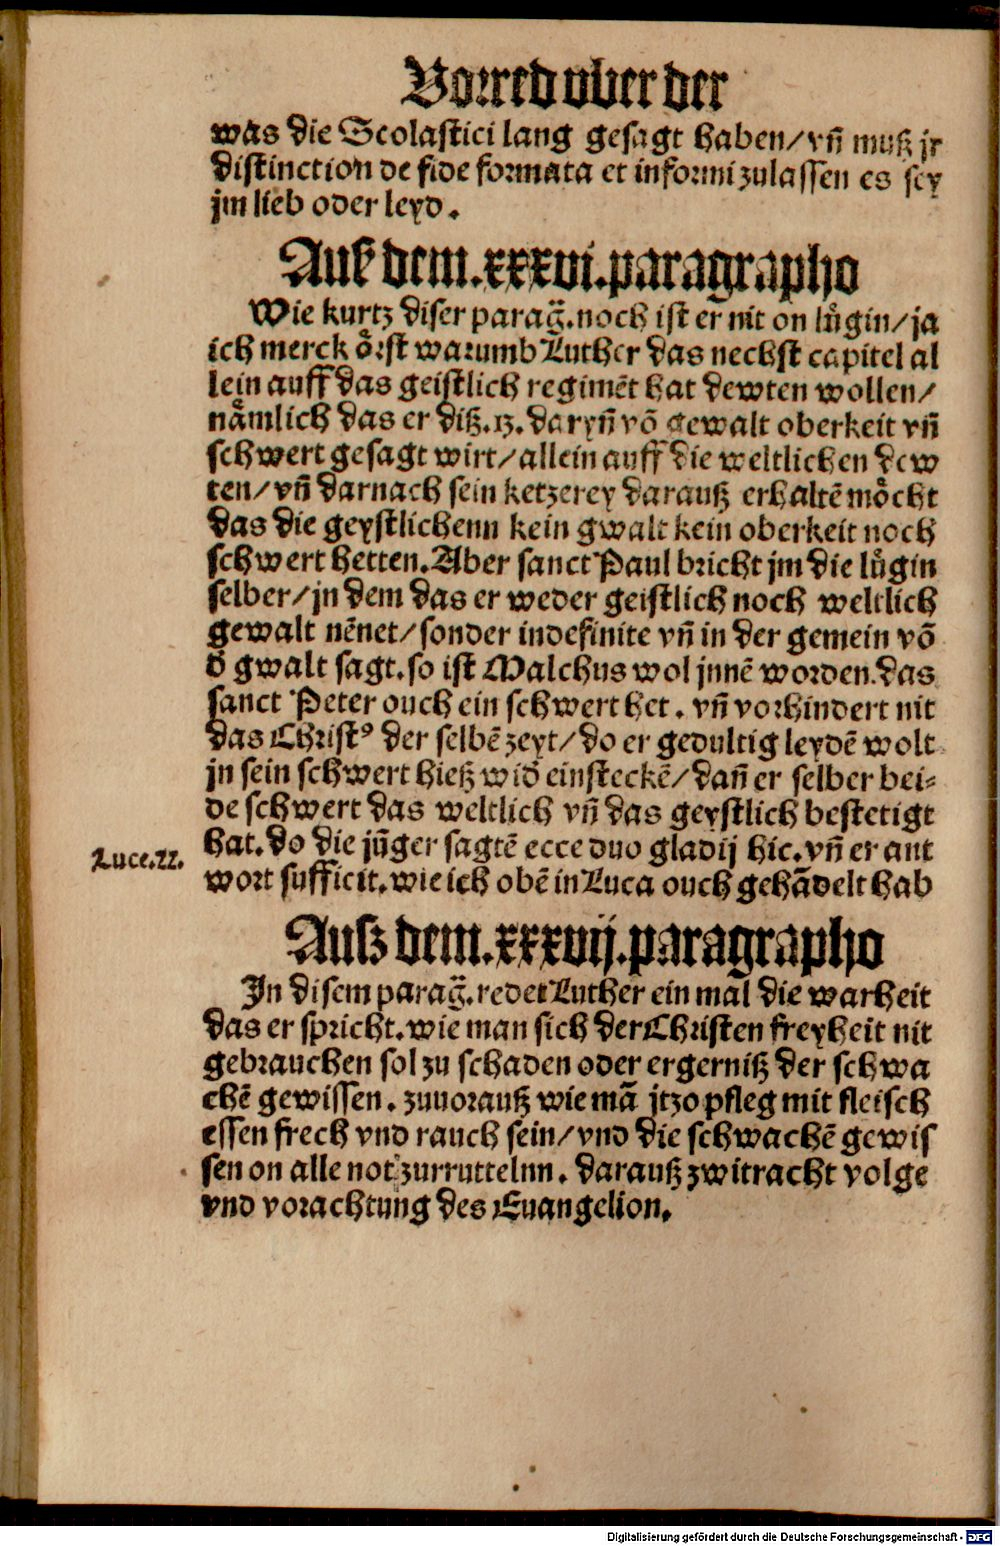 Vorred vber der
was die Scolastici lang gesagt haben/ vn̄ muß jr
distinction de fide formata et informi zulassen es sey
jm lieb oder leyd.
Auß dem.xxxvi.paragrapho
Wie kurtz diser parag̃.noch ist er nit on lůgin/ ja
ich merck ȯrst warumb Luther das nechst capitel al
lein auff das geistlich regimēt hat dewten wollen/
nåmlich das er diß.13.daryn̄ vō gewalt oberkeit vn̄
schwert gesagt wirt/ allein auff die weltlichen dew
ten/ vn̄ darnach sein ketzerey darauß erhaltē mȯcht
das die geystlichenn kein gwalt kein oberkeit noch
schwert hetten. Aber sanct Paul bricht jm die lůgin
selber/ jn dem das er weder geistlich noch weltlich
gewalt nēnet/ sonder indefinite vn̄ in der gemein vō
d̄ gwalt sagt. so ist Malchus wol jnnē worden.das
sanct Peter ouch ein schwert het. vn̄ vorhindert nit
das Christꝰ der selbē zeyt/ do er gedultig leydē wolt
jn sein schwert hieß wid̄ einsteckē/ dan̄ er selber bei⸗
de schwert das weltlich vn̄ das geystlich bestetigt
hat. do die jūger sagtē ecce duo gladij hic. vn̄ er ant
Luce.22.
wort sufficit. wie ich obē in Luca ouch gehādelt hab
Ausz dem.xxxvij.paragrapho
In disem parag̃.redet Luther ein mal die warheit
das er spricht. wie man sich der Christen freyheit nit
gebrauchen sol zu schaden oder ergerniß der schwa
chē gewissen. zuuorauß wie mā jtzo pfleg mit fleisch
essen frech vnd rauch sein/ vnd die schwachē gewis
sen on alle not zurruttelnn. darauß zwitracht volge
vnd vorachtung des Euangelion.
Digitalisierung gefördert durch die Deutsche Forschungsgemeinschaft - DFG